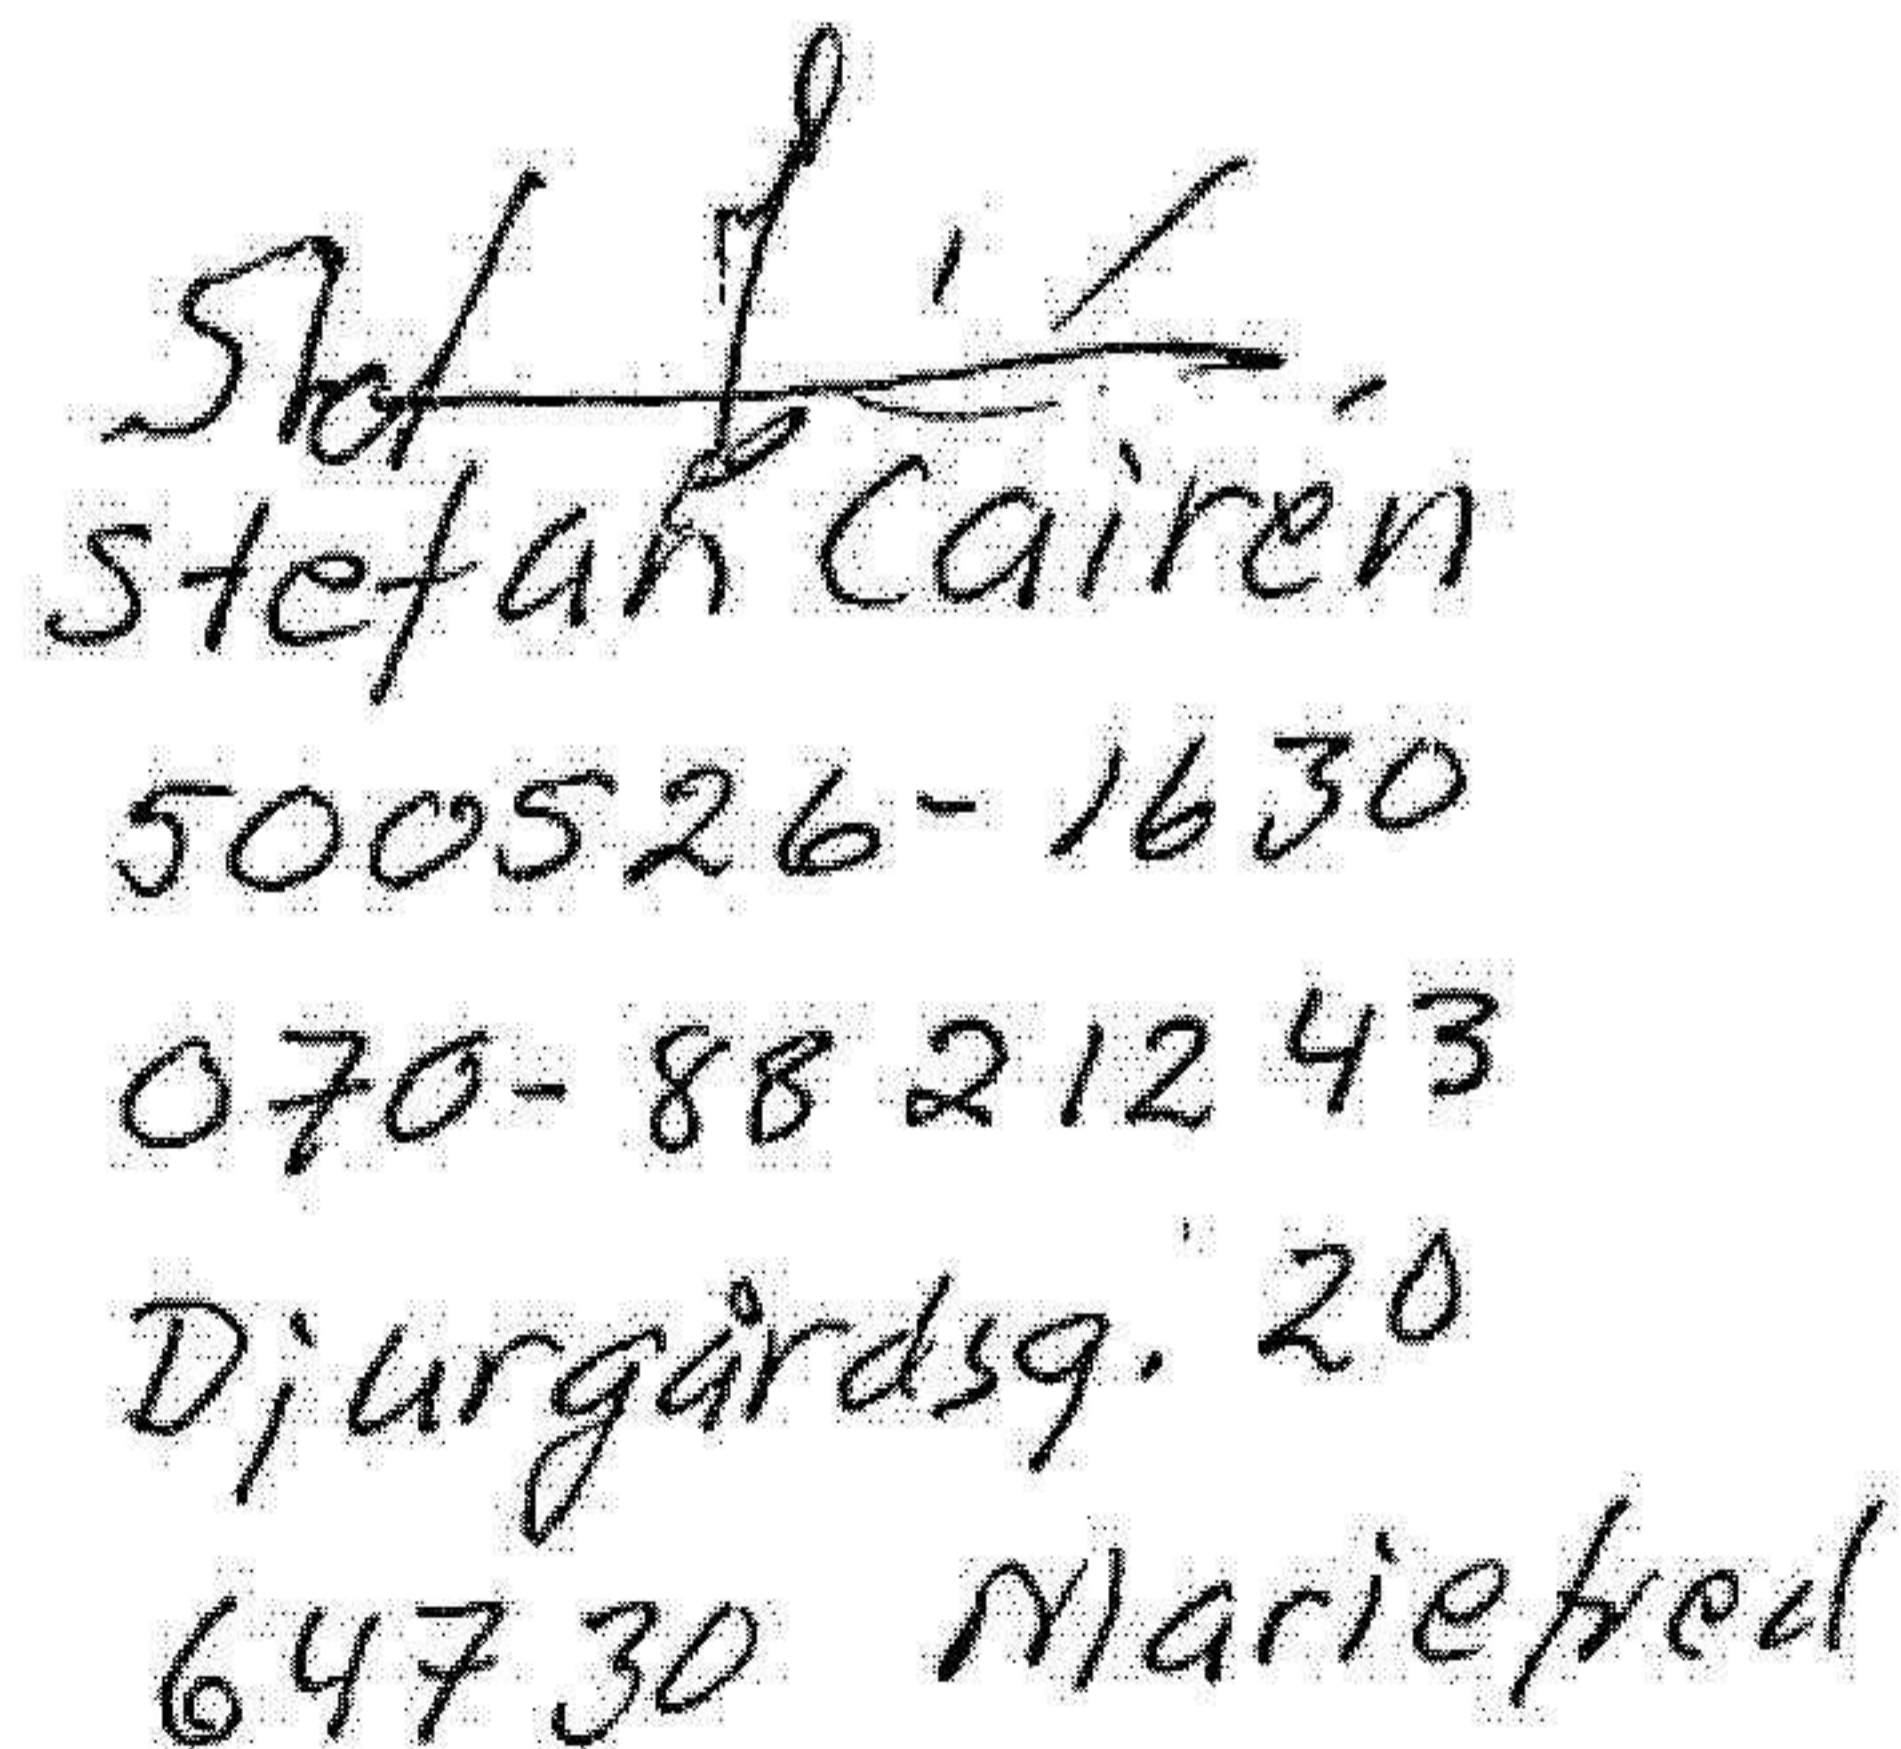 Stefan Cairén
500526-1630
070-88 212 43
Djurgårdsg. 20
647 30 Mariefred